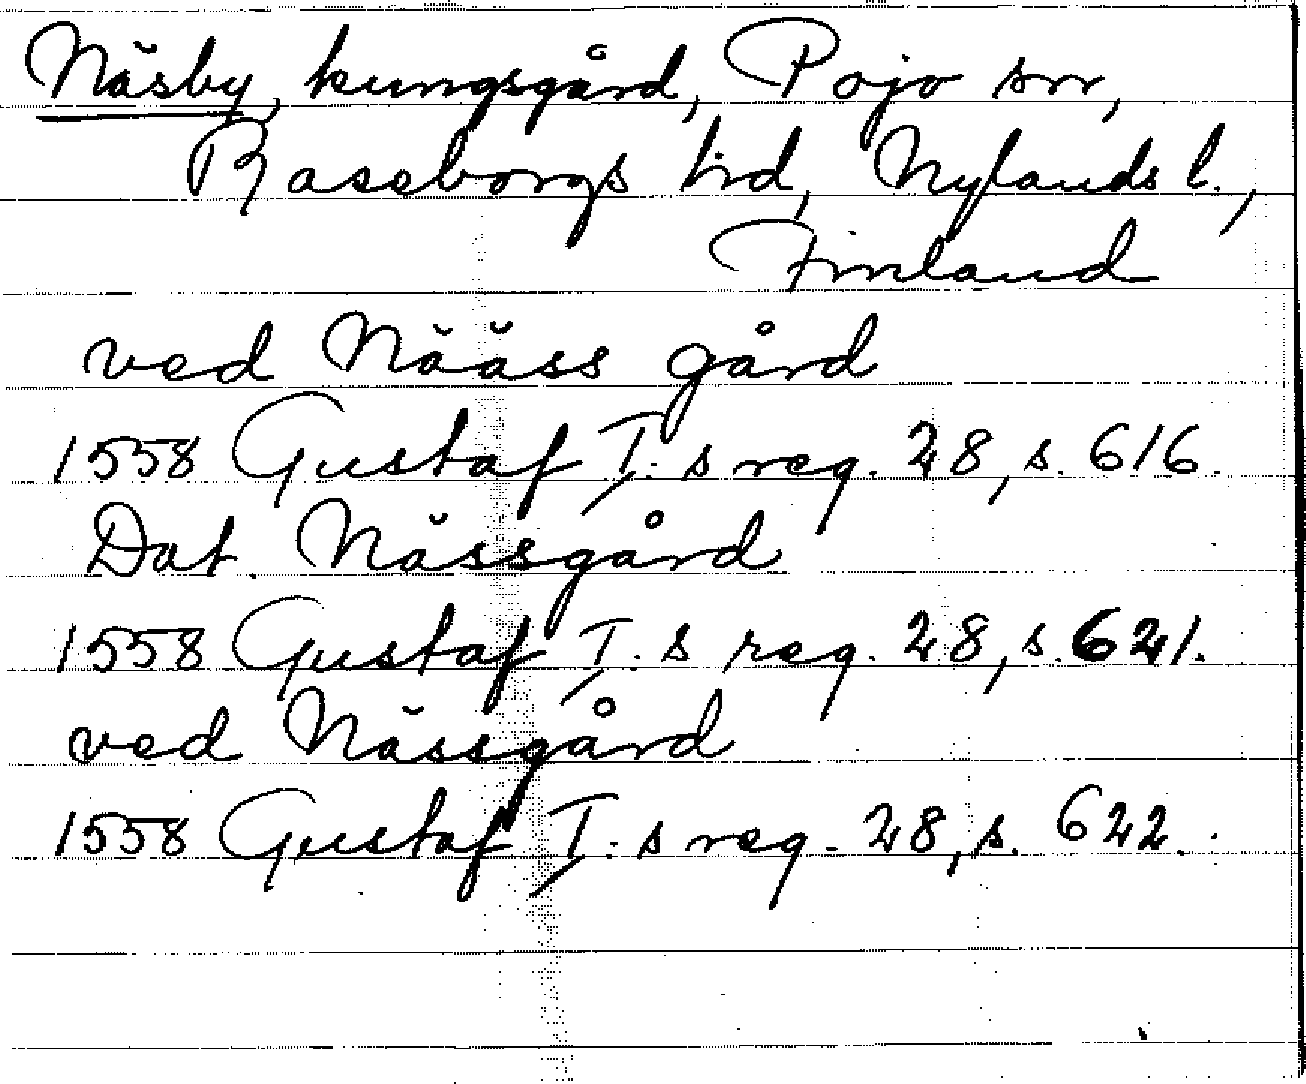 Näsby, kungsgård, Pojo sn,
Raseborgs hrd, Nylands l.,
Finland
ved Nääss gård
1558 Gustaf I:s reg. 28, s. 616.
Dat. Nässgård
1558 Gustaf I:s reg. 28, s. 621.
ved Nässgård
1558 Gustaf I:s reg. 28, s. 622.